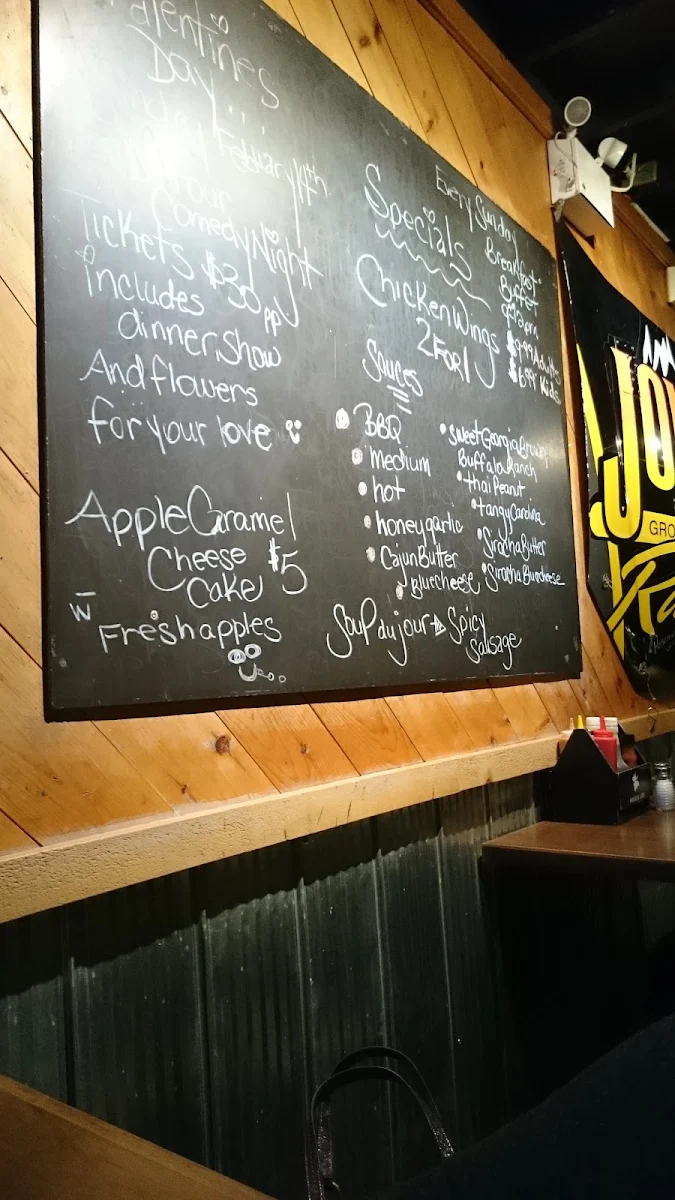 Valentines
Day...
February 14th
Comedy Night
Tickets $30 pp
includes
dinner, show
And flowers
for your love
Apple Caramel
Cheese $5
Cake
w
Fresh apples
Every Sunday
Breakfast
Buffet
9-12pm
$9.99 Adults
$6.99 Kids
Specials
Chicken Wings
2 For 1
Sauces
BBQ
medium
hot
honey garlic
Cajun Butter
Bluecheese
Sweet Georgia Brown
Buffalo Ranch
thai Peanut
tangy Carolina
Siracha Butter
Siracha Bluecheese
Soup du jour → Spicy
Sausage
JO
GRO